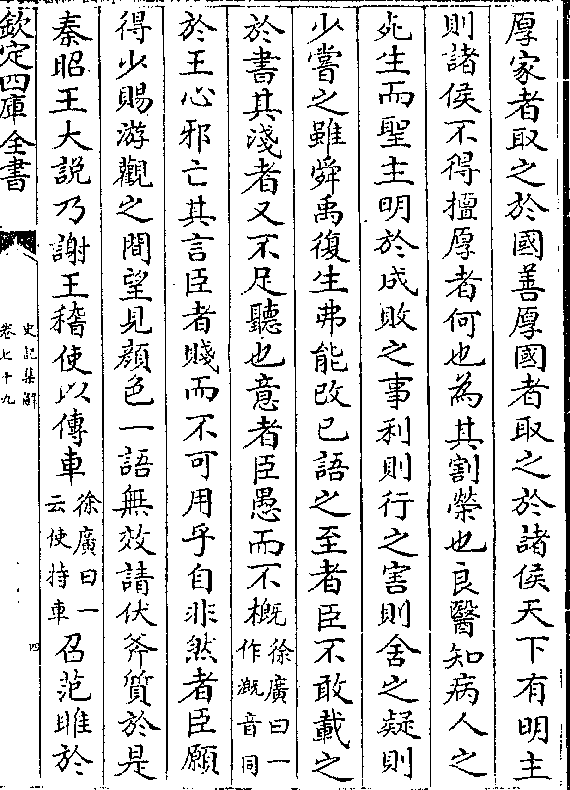 厚家者取之於國善厚國者取之於諸侯天下有明主
則諸侯不得擅厚者何也為其割榮也良醫知病人之
死生而聖主明於成敗之事利則行之害則舍之疑則
少嘗之雖舜禹復生弗能改已語之至者臣不敢載之
於書其淺者又不足聽也意者臣愚而不概徐廣曰一作溉音同
於王心邪亡其言臣者賤而不可用乎自非然者臣願
得少賜游觀之間望見顏色一語無效請伏斧質於是
秦昭王大說乃謝王稽使以傳車徐廣曰一云使持車召范雎於
欽定四庫全書
史記集解
卷七十九
四